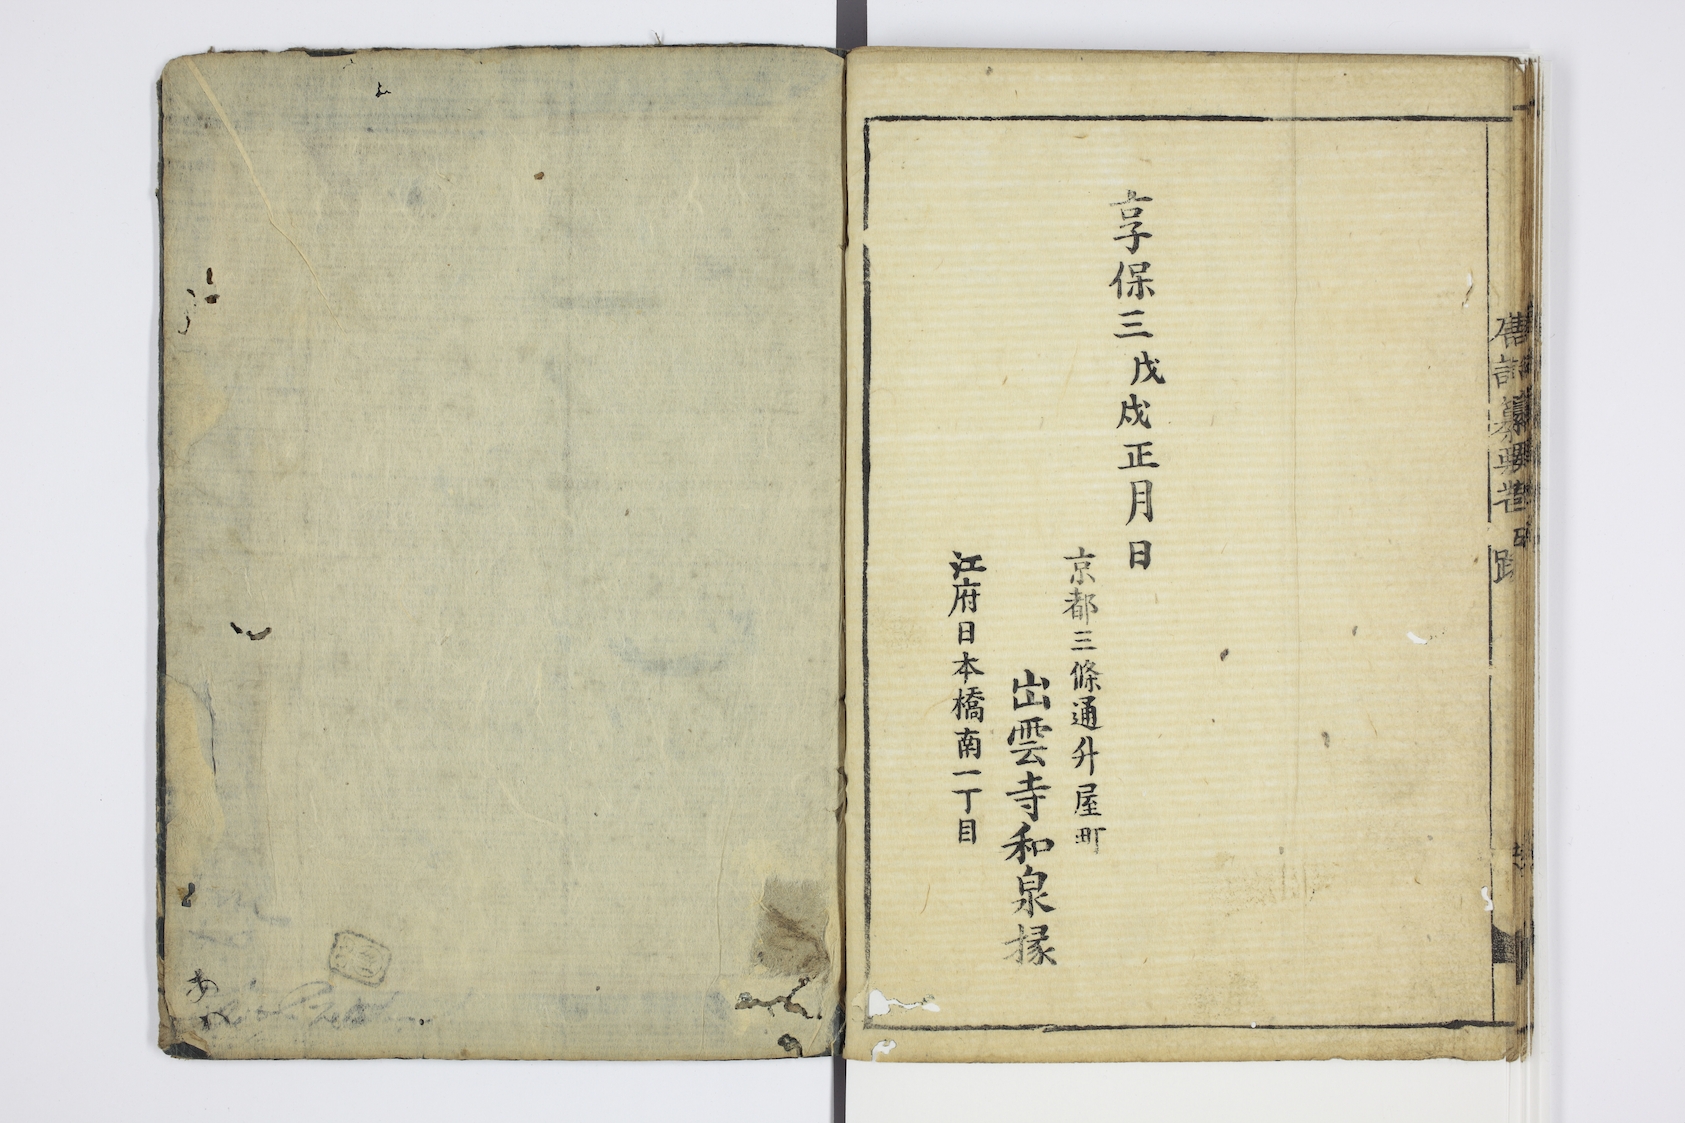 享保三戊戌正月日
京都三條通升屋町
出雲寺和泉掾
江府日本橋南一丁目